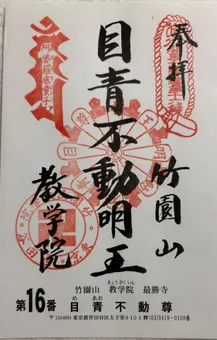 奉拝
竹園山
目青不動明王
教学院
竹園山 教学院 最勝寺
きょうがくいん
第16番 目青不動尊
め あお
〒154-0004 東京都世田谷区太子堂4-15-1 ☎(03)3419-0108